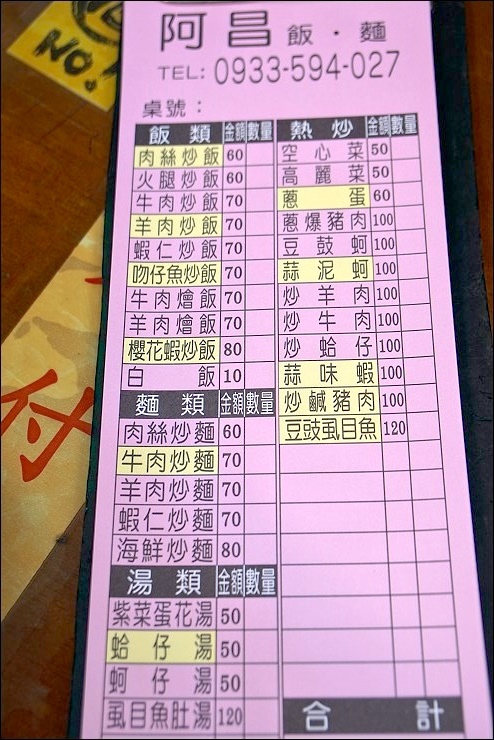 NO.
阿昌飯・麵
TEL: 0933-594-027
桌號：
飯類 金額 數量
肉絲炒飯 60
火腿炒飯 60
牛肉炒飯 70
羊肉炒飯 70
蝦仁炒飯 70
吻仔魚炒飯 70
牛肉燴飯 70
羊肉燴飯 70
櫻花蝦炒飯 80
白飯 10
麵類 金額 數量
肉絲炒麵 60
牛肉炒麵 70
羊肉炒麵 70
蝦仁炒麵 70
海鮮炒麵 80
湯類 金額 數量
紫菜蛋花湯 50
蛤仔湯 50
蚵仔湯 50
虱目魚肚湯 120
熱炒 金額 數量
空心菜 50
高麗菜 50
蔥蛋 60
蔥爆豬肉 100
豆鼓蚵 100
蒜泥蚵 100
炒羊肉 100
炒牛肉 100
炒蛤仔 100
蒜味蝦 100
炒鹹豬肉 100
豆豉虱目魚 120
合計
付